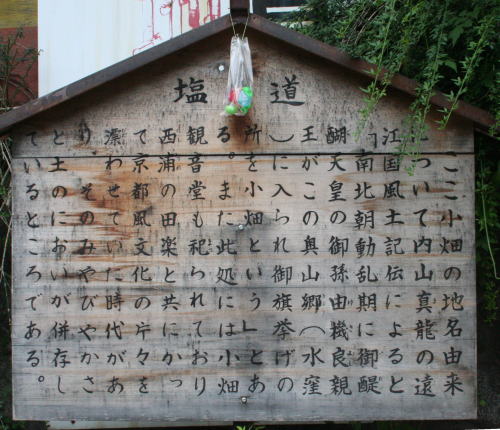 塩 道
ここ小畑の地名由来
について内山真龍の遠
江国風土記伝によると
「南北朝動乱期に御醍
醐天皇の御孫由機良親
王がこの奥山郷(水窪
)に入られ御旗挙げの
所を小畑という」とあ
る。また此処には小畑
観音堂も祀られており
西浦の田楽と共にかっ
て京都風文化の片々を
漂わせていた時代があ
り、そのみやびやかさ
と土のにおいが併存し
ているところである。